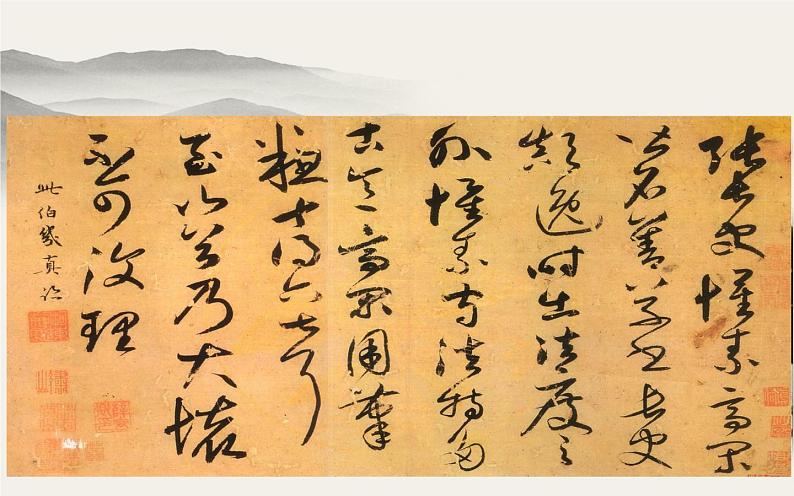 張長史懷素高閑
皆名善草書長史
顛逸時出法度之
外懷素守法特多
古意高閑用筆
粗十得六七耳
至山谷乃大壞
不可復理
此伯幾真跡